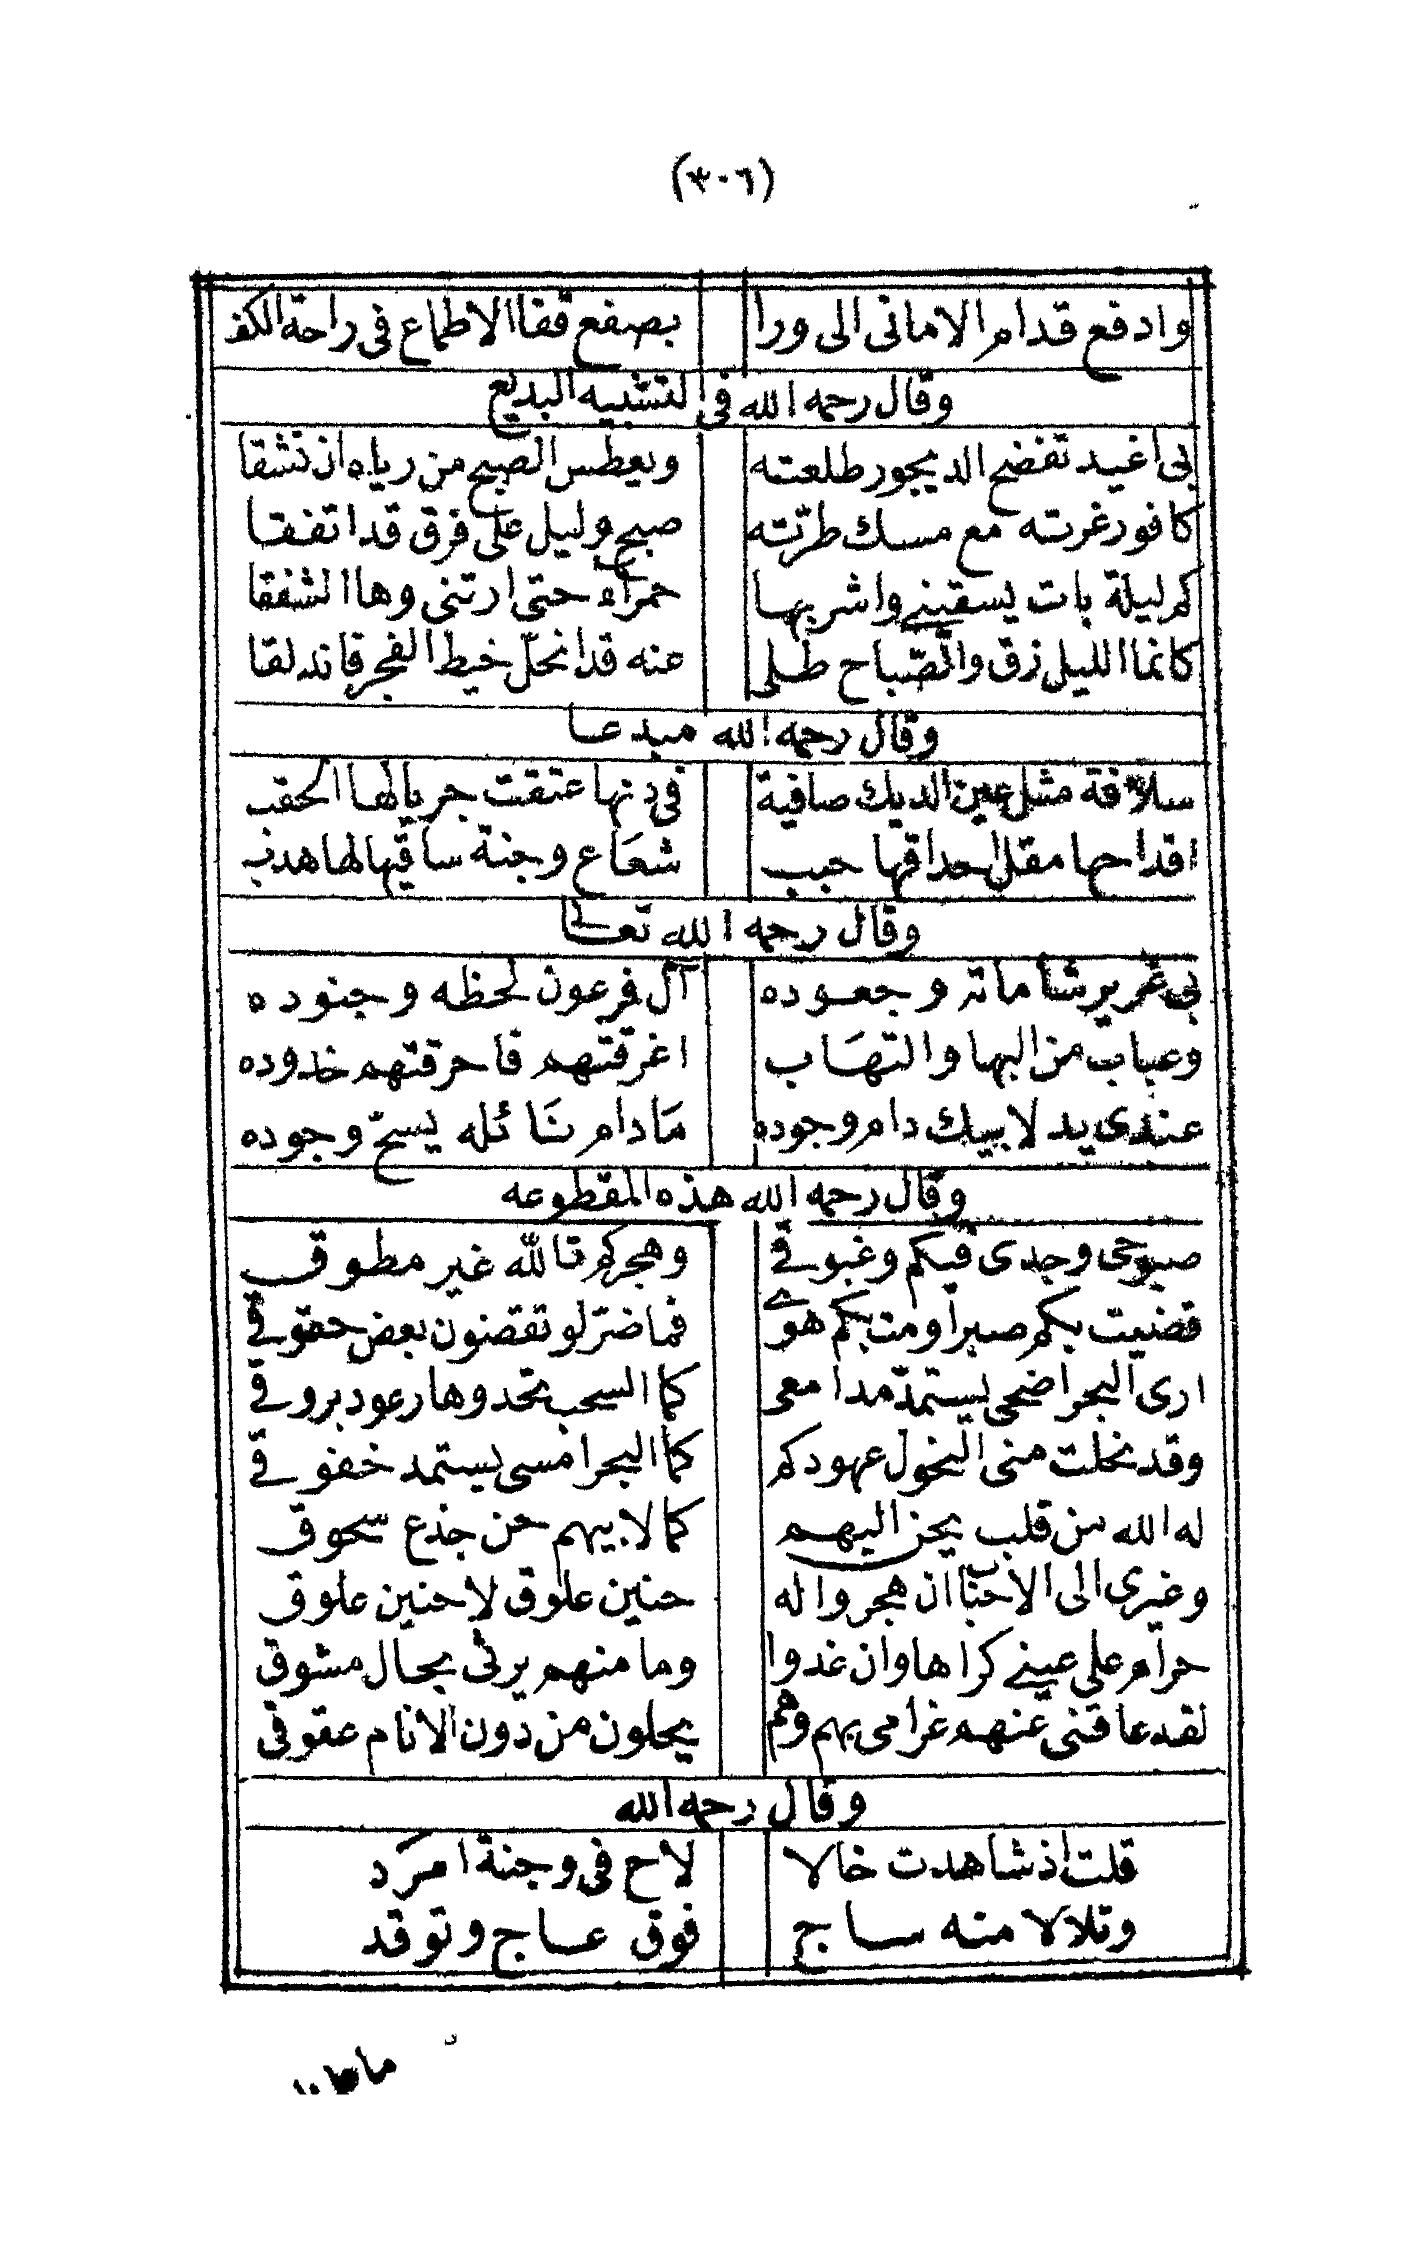 (٣٠٦)
وادفع قدام الاماني الى ورا بصفع قفا الاطماع في راحة الكف
وقال رحمه الله في التشبيه البديع
بي اغيد تفضح الديجور طلعته ويعطس الصبح من رياه ان نشقا
كافور غرته مع مسك طرّته صبح وليل على فرق قد اتفقا
كم ليلة بات يسقيني واشربها حمراء حتى ارتني وهاا لشفقا
كانما الليل زق والصّباح طلى عنه قد انحلّ خيط الفجر فاندلقا
وقال رحمه الله مبدعا
سلافة مثل عين الديك صافية في دنها عتقت جريالها الحقب
اقداحها مقل احداقها حبب شعاع وجنة ساقيها لها هدب
وقال رحمه الله تعالى
بي غرير شاماته وجعوده آل فرعون لحظه وجنوده
وعباب من البها والتهاب اغرقتهم فاحرقتهم خدوده
عندى يد لابيك دام وجوده مادام نائله يسحّ وجوده
وقال رحمه الله هذه المقطوعه
صبوحى وجدى فيكم وغبوقي وهجركم تالله غير مطوق
قضيت بكم صبرا ومت بكم هوى فما ضرّ لو تقضون بعض حقوقي
ارى البحر اضحى يستمدّ مدامعى كما السحب تحدوها رعود بروقي
وقد نحلت منى النحول عهودكم كما البحر امسى يستمد خفوقي
له الله من قلب يحن اليهم كما لابيهم حن جذع سحوق
وغيرى الى الاحباب ان هجروا له حنين علوق لا حنين علوق
حرام على عيني كراها وان غدوا وما منهم يرثى بحال مشوق
لقد عاقنى عنهم غرامى بهم وهم يجلون من دون الانام عقوقي
وقال رحمه الله
قلت اذ شاهدت خالا لاح في وجنة امرد
وتلالا منه ساج فوق عاج وتوقد